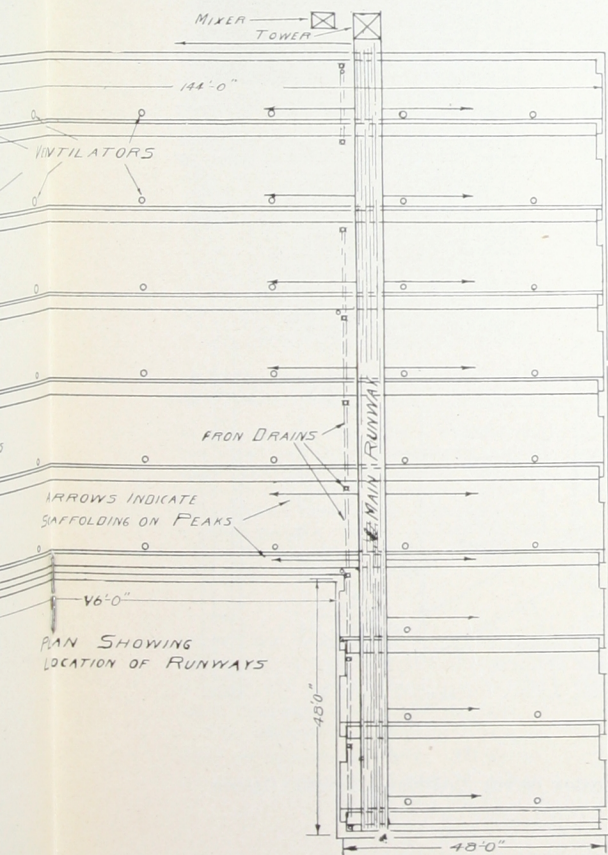 MIXER
TOWER
144'-0"
VENTILATORS
IRON DRAINS
MAIN RUNWAY
ARROWS INDICATE
SCAFFOLDING ON PEAKS
96'-0"
PLAN SHOWING
LOCATION OF RUNWAYS
48'-0"
48'-0"